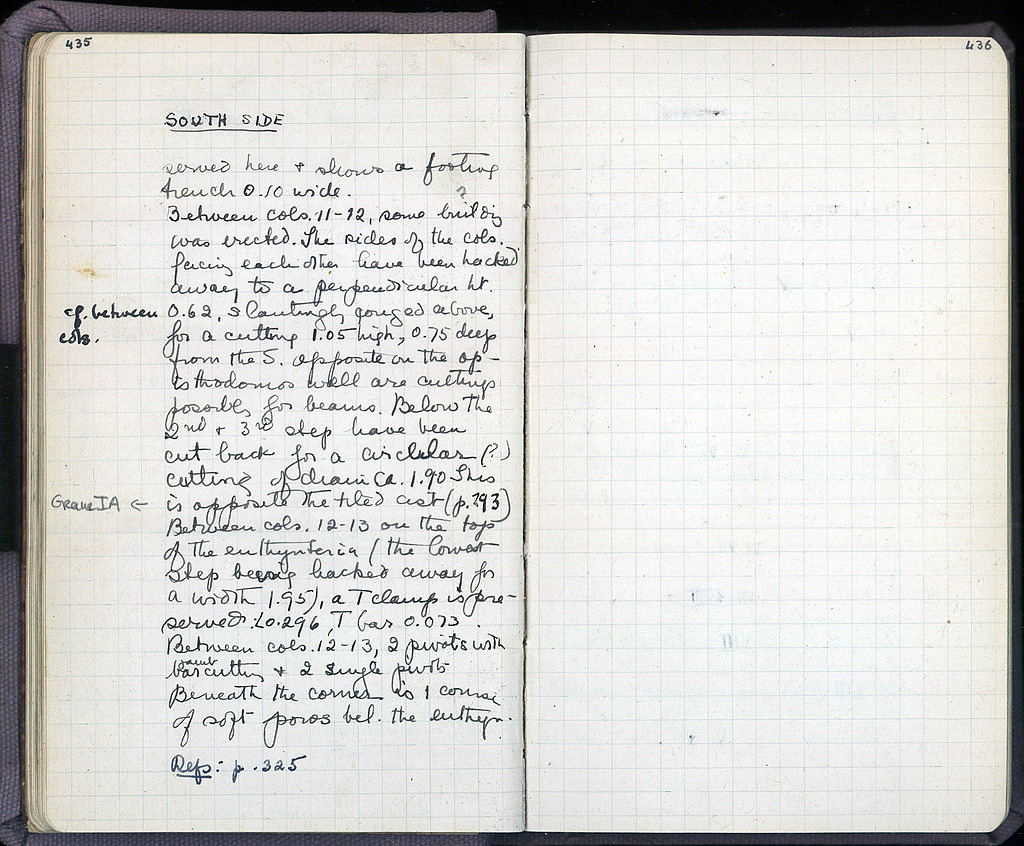 435
436
SOUTH SIDE
served here + shows a footing
trench 0.10 wide.
?
Between cols. 11-12, some buildig
was erected. The sides of the cols.
facing each other have been hacked
away to a perpendicular ht.
cf. between
cols.
0.62, slantingly gouged above,
for a cutting 1.05 high, 0.75 deep
from the S. opposite on the op-
isthodomos wall are cuttings
possibly for beams. Below the
2nd + 3rd step have been
cut back for a circular (?)
cutting of diam ca. 1.90 This
Grave IA ←
is opposite the tiled cist (p. 293)
Between cols. 12-13 on the top
of the euthynteria (the lowest
step being hacked away for
a width 1.95), a T clamp is pre-
served. L 0.296, T bar 0.073.
Between cols. 12-13, 2 pivots with
cutting + 2 single pivots
Beneath the corner is 1 course
of soft poros bel. the euthyn.
Refs: p. 325